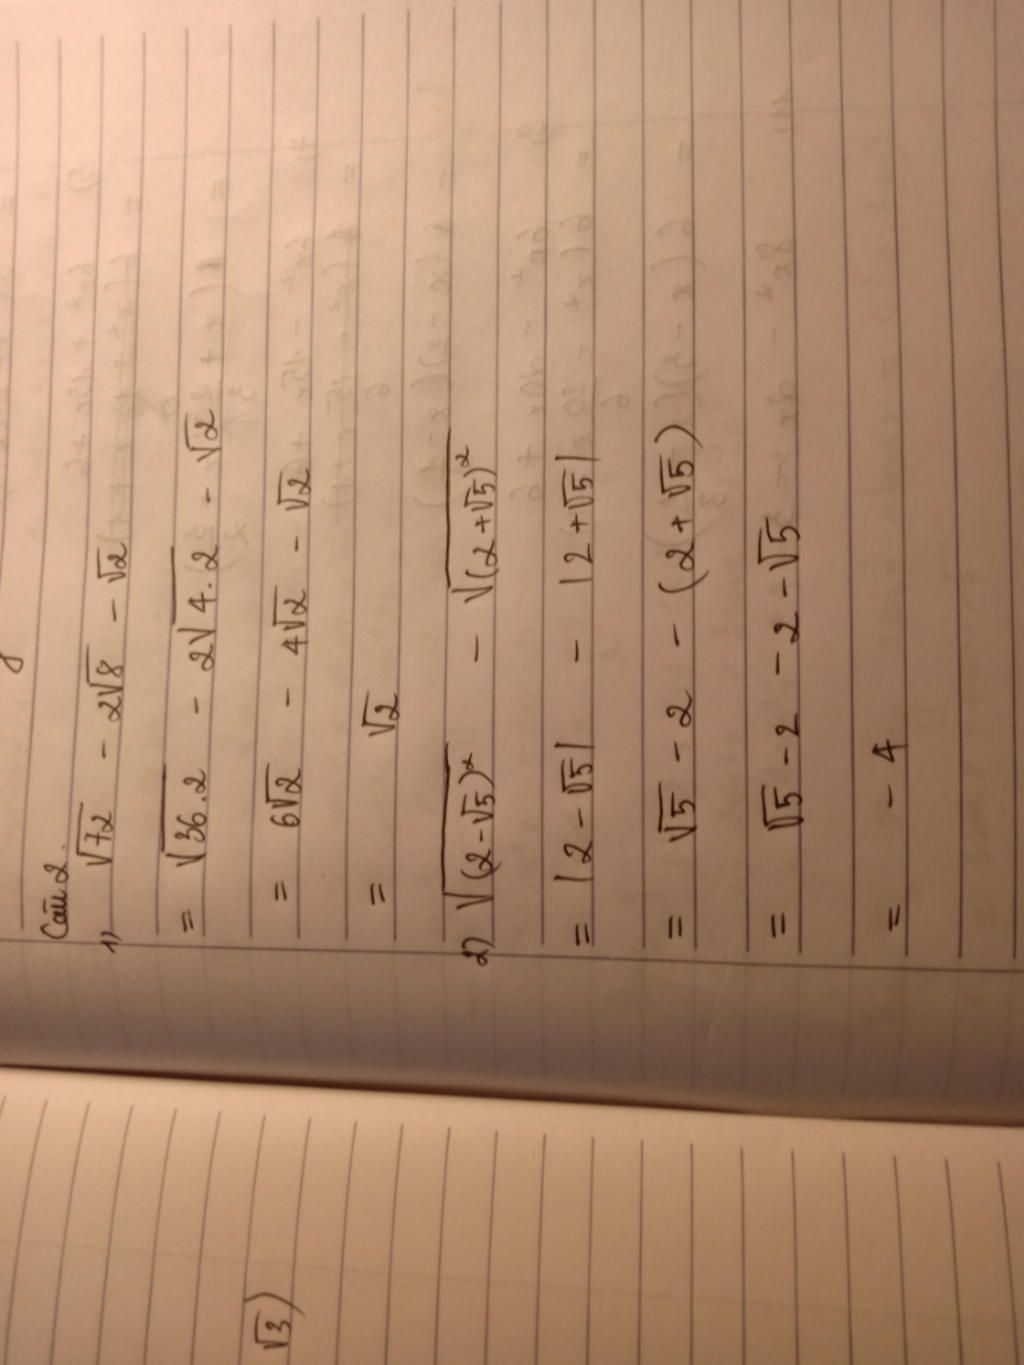 Câu 2.
1) √72 - 2√8 - √2
= √36.2 - 2√4.2 - √2
= 6√2 - 4√2 - √2
= √2
2) √(2-√5)² - √(2+√5)²
= |2-√5| - |2+√5|
= √5 - 2 - (2+√5)
= √5 - 2 - 2 - √5
= - 4
√3)